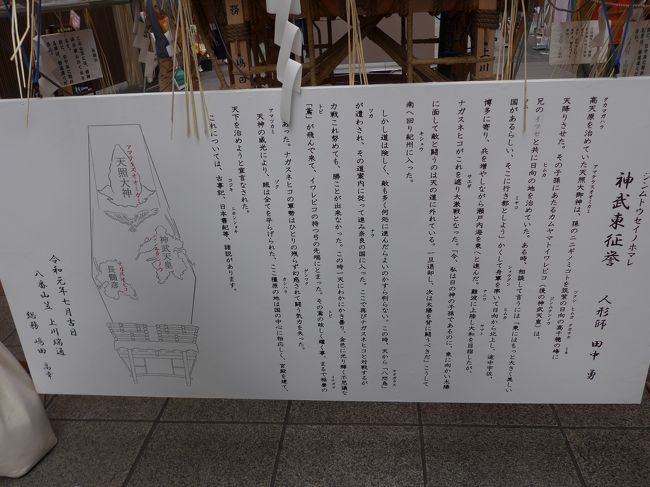 ジンムトウセイノホマレ
神武東征誉
人形師 田中 勇
タカマガハラ アマテラスオオミカミ
高天原を治めていた天照大御神は、孫のニニギノミコトを筑紫の日向の高千穂の峰に
天降りさせた。その子孫にあたるカムヤマトイワレビコ（後の神武天皇）は、
兄のイツセと共に日向の地を治めていた。ある時、相談して言うには「東にはもっと大きく美しい
国があるらしい、そこに行き都としよう」かくして舟軍を率いて日向から北上し、途中宇佐、
博多に寄り、兵を増やしながら瀬戸内海を東へと進んだ。難波に上陸し大和を目指したが、
ナガスネヒコがこれを遮り大激戦となった。「今、私は日の神の子孫であるのに、東に向かい太陽
に面して敵と闘うのは天の道に外れている。一旦退却し、次は太陽を背に闘うべきだ」こうして
南へ回り紀州に入った。
しかし道は険しく、敵も多く何処に進んだらよいのかすら判らない。この時、天から「八咫烏」
が遣わされ、その道案内に従って進み奈良の国に入った。ここで再びナガスネヒコと対戦するが
力戦これ努めても、勝ことが出来なかった。この時一天にわかにかき曇り、金色に光り輝く不思議な
「鵄」が飛んで来て、イワレビコの持つ弓の弭にとまった。その鵄の眩しく輝く事、まるで稲妻の
あった。ナガスネヒコの軍勢はひとり残らず幻惑されて闘う気力を失った。
天神の威光により、賊は全てを平らげられた。ここ橿原の地は国の中心に相応しく、宮殿を建て、
天下を治めようと宣言なされた。
これについては、古事記、日本書紀等、諸説があります。
天照大神
神武天皇
長髄彦
令和元年七月吉日
八番山笠 上川端通
総務 嶋田 高幸
務 嶋田
上川